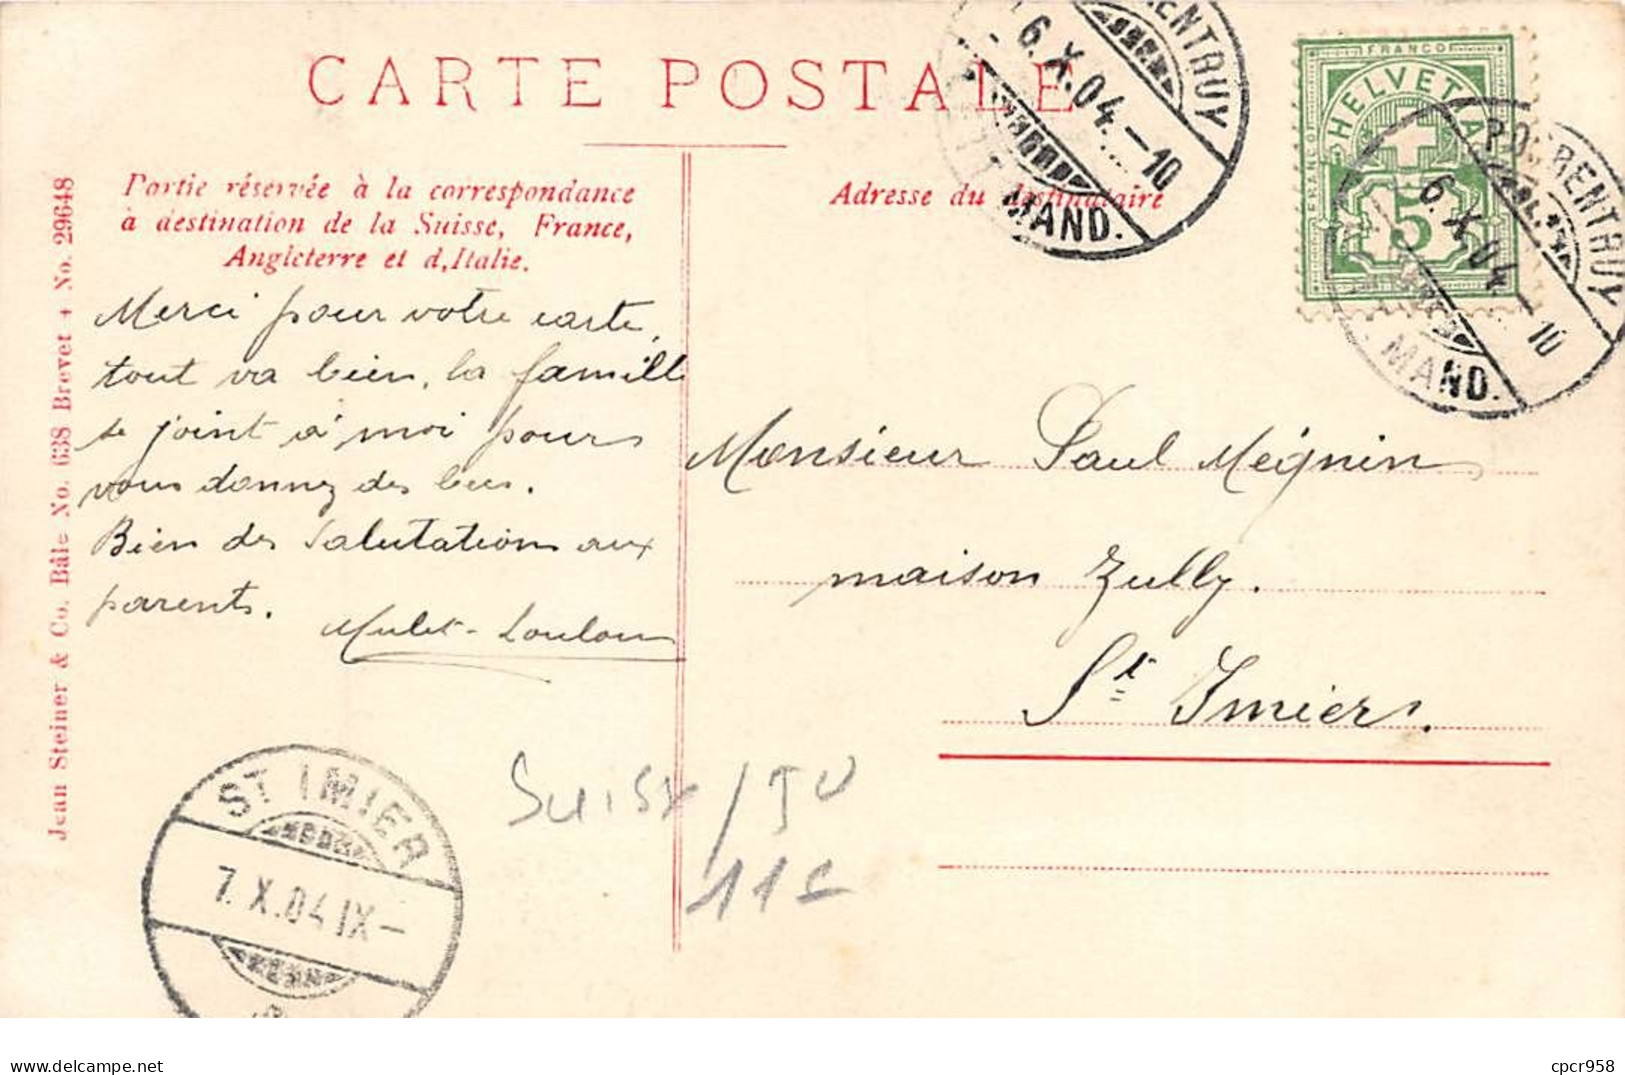 CARTE POSTALE
Partie réservée à la correspondance
à destination de la Suisse, France,
Angleterre et d,Italie.
Adresse du destinataire
Jean Steiner & Co. Bâle No. 638 Brevet + No. 29648
Merci pour votre carte,
tout va bien, la famille
se joint à moi pour
vous donnez des becs.
Bien des salutations aux
parents.
Loulou
Monsieur Paul Mégnin
maison Zully.
St Imiers.
PORRENTRUY
6.X.04.-10
MAND.
FRANCO
HELVETIA
FRANCO
5
PORRENTRUY
6.X.04.-10
MAND.
ST IMIER
7.X.04 IX-
SUISSE / JU
11
cpcr958